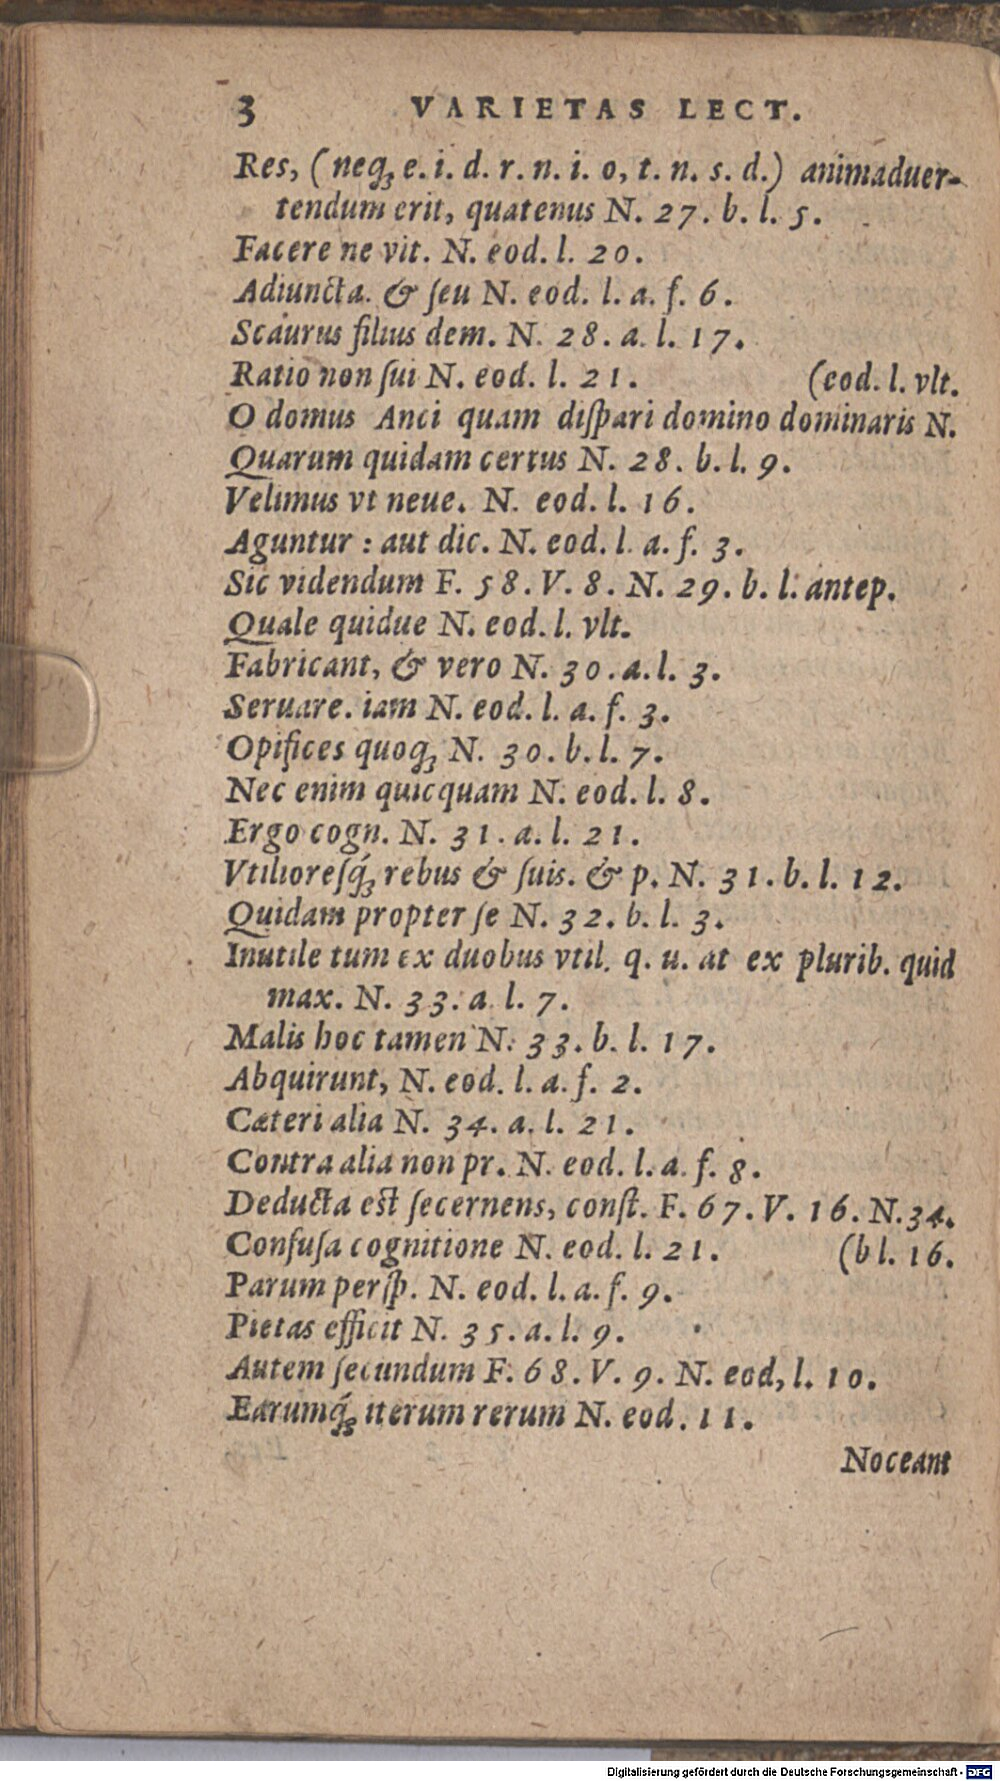 3 VARIETAS LECT.
Res, (neq́ꝫ e. i. d. r. n. i. o, t. n. s. d.) animaduer-
tendum erit, quatenus N. 27. b. l. 5.
Facere ne vit. N. eod. l. 20.
Adiuncta. & ſeu N. eod. l. a. f. 6.
Scaurus filius dem. N. 28. a. l. 17.
Ratio non ſui N. eod. l. 21. (eod. l. vlt.
O domus Anci quam diſpari domino dominaris N.
Quarum quidam certus N. 28. b. l. 9.
Velimus vt neue. N. eod. l. 16.
Aguntur : aut dic. N. eod. l. a. f. 3.
Sic videndum F. 58. V. 8. N. 29. b. l. antep.
Quale quidue N. eod. l. vlt.
Fabricant, & vero N. 30. a. l. 3.
Seruare. iam N. eod. l. a. f. 3.
Opifices quoqꝫ N. 30. b. l. 7.
Nec enim quicquam N. eod. l. 8.
Ergo cogn. N. 31. a. l. 21.
Vtilioreſq́ꝫ rebus & ſuis. & p. N. 31. b. l. 12.
Quidam propter ſe N. 32. b. l. 3.
Inutile tum ex duobus vtil. q. u. at ex plurib. quid
max. N. 33. a. l. 7.
Malis hoc tamen N. 33. b. l. 17.
Abquirunt, N. eod. l. a. f. 2.
Cæteri alia N. 34. a. l. 21.
Contra alia non pr. N. eod. l. a. f. 8.
Deducta eſt ſecernens, conſt. F. 67. V. 16. N. 34.
Confuſa cognitione N. eod. l. 21. (b l. 16.
Parum perſp. N. eod. l. a. f. 9.
Pietas efficit N. 35. a. l. 9.
Autem ſecundum F. 68. V. 9. N. eod, l. 10.
Earumq́ꝫ iterum rerum N. eod. 11.
Noceant
Digitalisierung gefördert durch die Deutsche Forschungsgemeinschaft - DFG